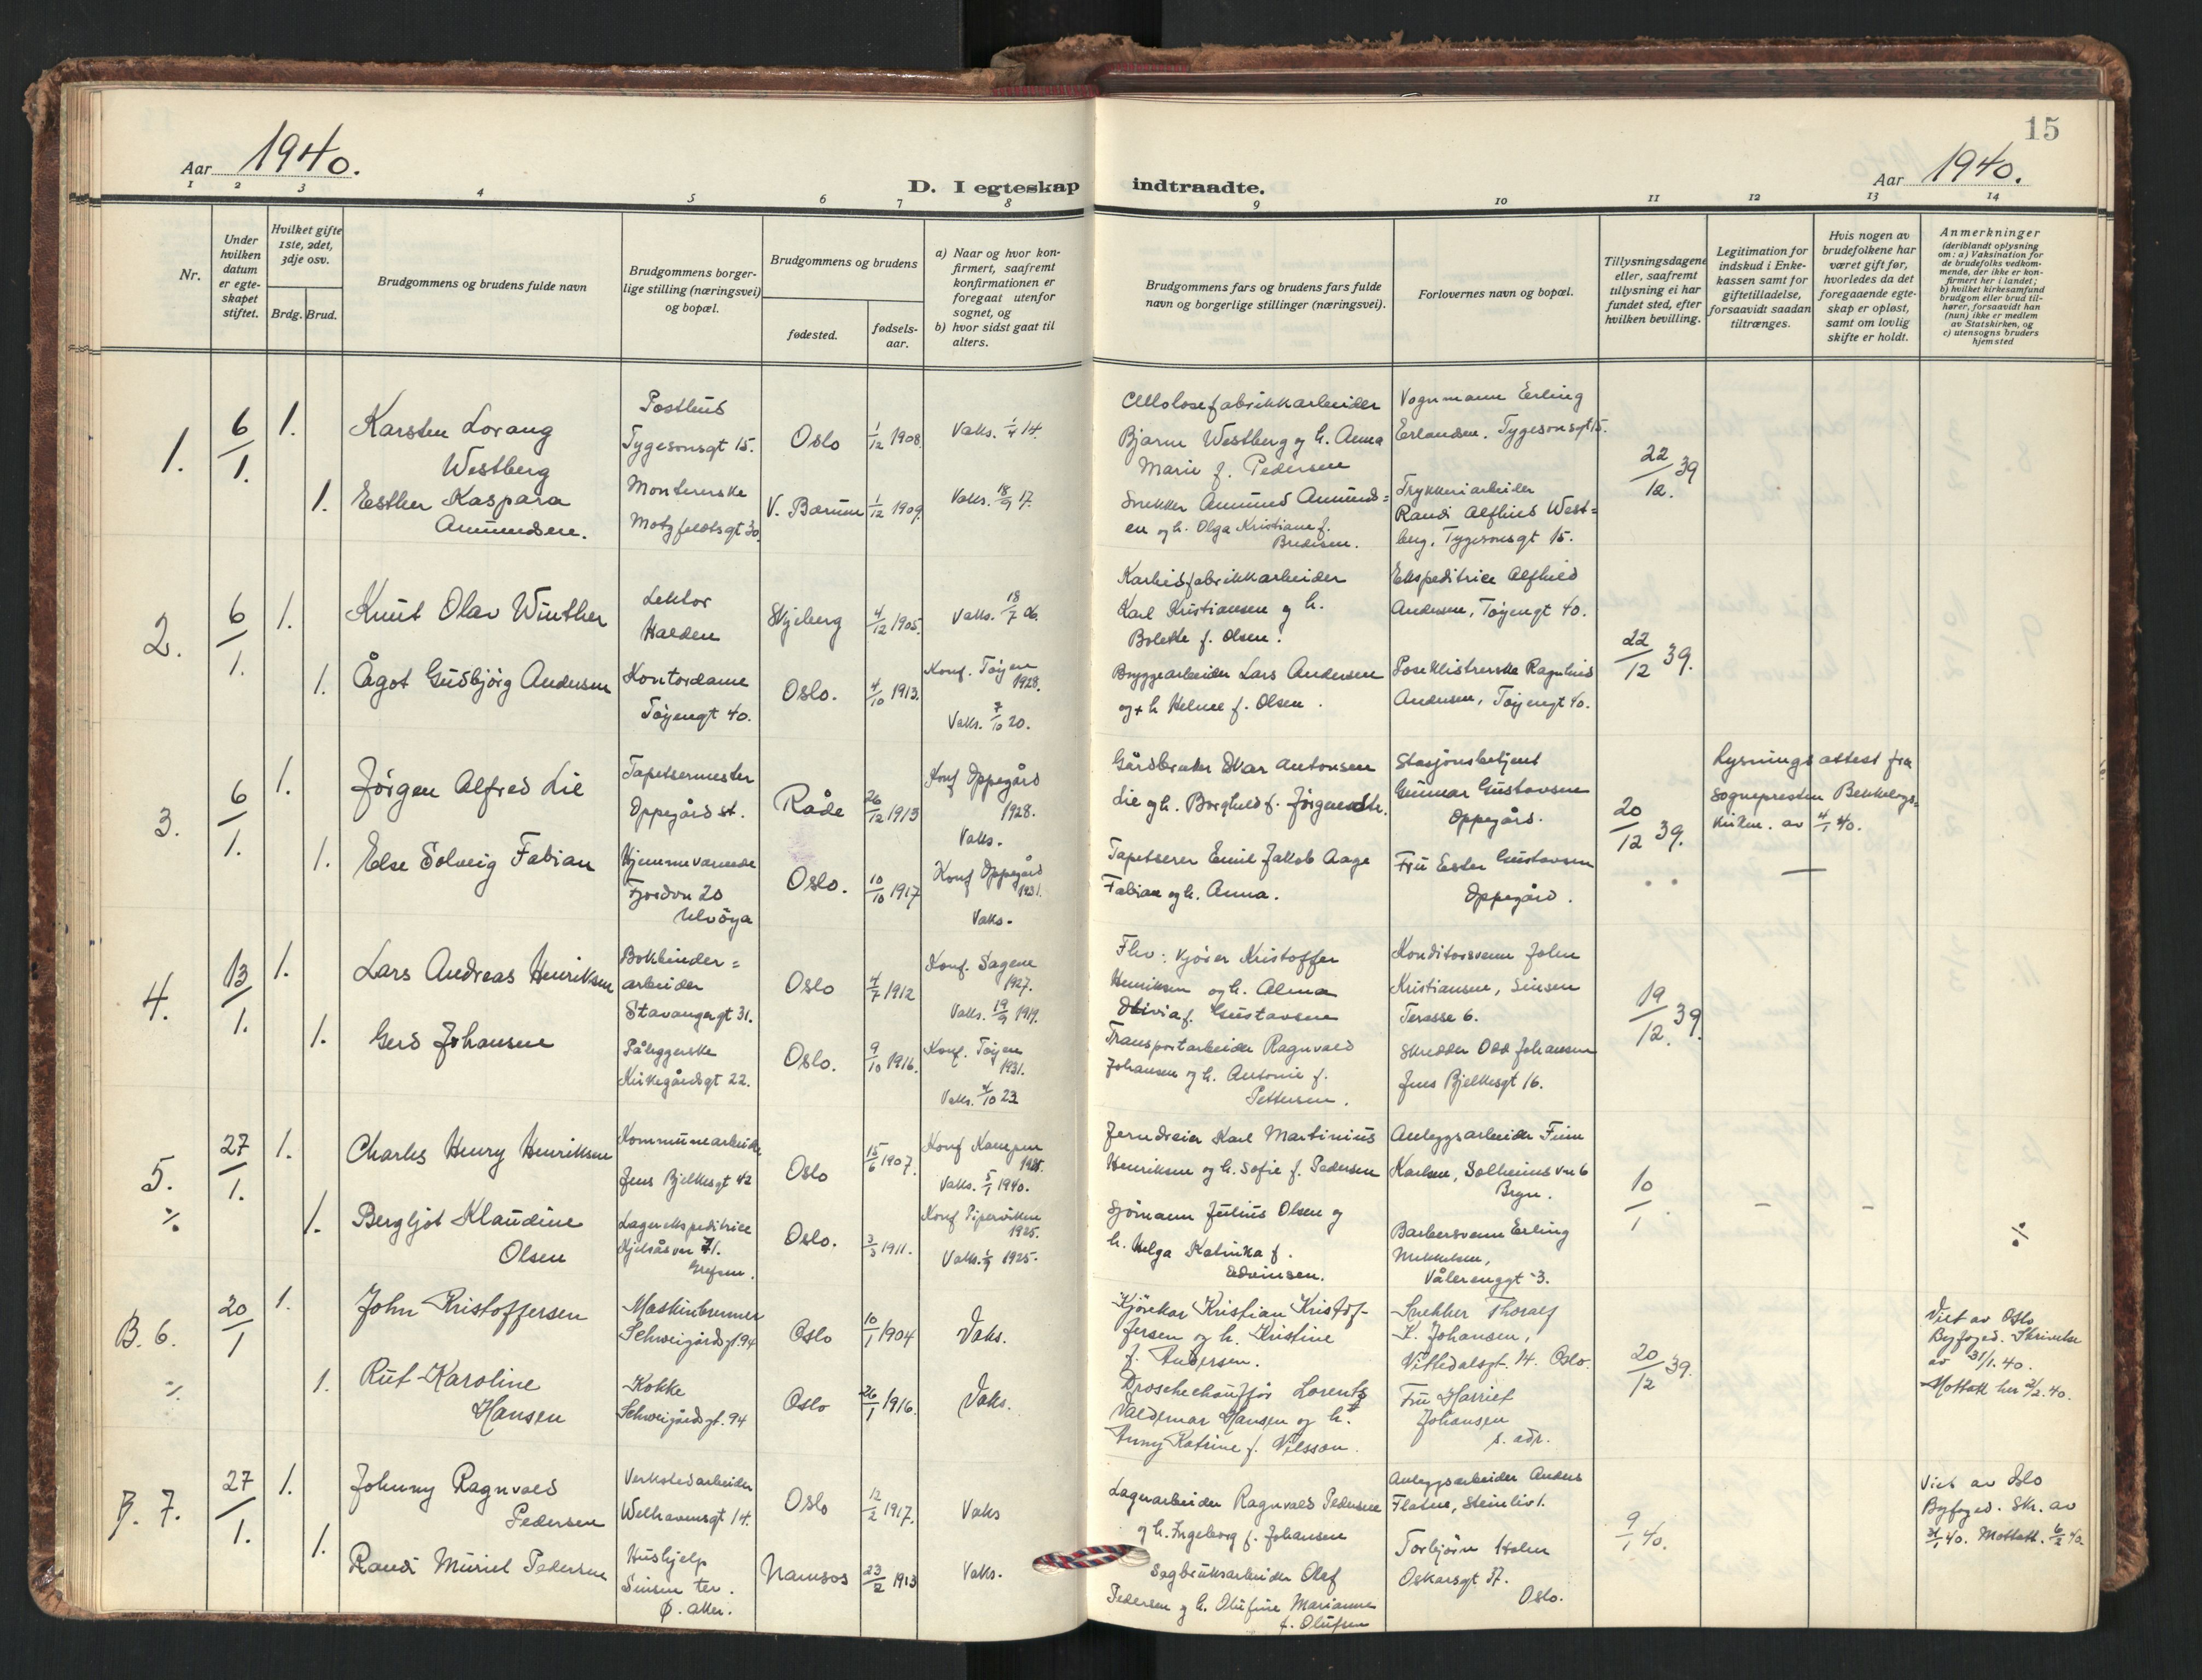 15
Aar 1940.
Aar 1940.
D. I egteskap indtraadte.
1 2 3 4 5 6 7 8 9 10 11 12 13 14
Nr.
Under
hvilken
datum
er egte-
skapet
stiftet.
Hvilket gifte
1ste, 2det,
3dje osv.
Brdg. Brud.
Brudgommens og brudens fulde navn
Brudgommens borger-
lige stilling (næringsvei)
og bopæl.
Brudgommens og brudens
fødested.
fødsels-
aar.
a) Naar og hvor kon-
firmert, saafremt
konfirmationen er
foregaat utenfor
sognet, og
b) hvor sidst gaat til
alters.
Brudgommens fars og brudens fars fulde
navn og borgerlige stillinger (næringsvei).
Forlovernes navn og bopæl.
Tillysningsdagene
eller, saafremt
tillysning ei har
fundet sted, efter
hvilken bevilling.
Legitimation for
indskud i Enke-
kassen samt for
giftetilladelse,
forsaavidt saadan
tiltrænges.
Hvis nogen av
brudefolkene har
været gift før,
hvorledes da det
foregaaende egte-
skap er opløst,
samt om lovlig
skifte er holdt.
Anmerkninger
(deriblandt oplysning
om: a) Vaksination for
de brudefolks vedkom-
mende, der ikke er kon-
firmert her i landet;
b) hvilket kirkesamfund
brudgom eller brud til-
hører, forsaavidt han
(hun) ikke er medlem
av Statskirken, og
c) utensogns bruders
hjemsted
1.
6/1.
1.
Karsten Lorang
Westberg
Postbud
Tygesonsgt 15.
Oslo
1/12 1908.
Vaks. 1/4 14.
Cellolosefabrikkarbeider
Bjarne Westberg og h. Anna
Marie f. Pedersen
Vognmann Erling
Erlandsen. Tygesonsgt 15.
22/12. 39
1.
Esther Kaspara
Amundsen.
Montererske
Motzfeldtsgt 30.
V. Bærum
1/12 1909.
Vaks. 18/9 17.
Snekker Amund Amunds=
en og h. Olga Kristiane f.
Bredesen.
Trykkeriarbeider
Randi Alfhild West=
berg, Tygesonsgt 15.
2.
6/1.
1.
Knut Olav Winther
Lektor
Halden
Skjeberg
4/12 1905.
Vaks. 18/7 06.
Karbidfabrikkarbeider
Karl Kristiansen og h.
Bolette f. Olsen.
Ekspeditrice Alfhild
Andersen, Tøyengt 40.
22/12 39.
1.
Ågot Gudbjørg Andersen
Kontordame
Tøyengt 40.
Oslo.
4/10 1913.
Konf. Tøyen
1928.
Vaks. 7/10 20.
Bryggearbeider Lars Andersen
og + h Helene f. Olsen.
Poseklistrerske Ragnhild
Andersen, Tøyengt 40.
3.
6/1.
1.
Jørgen Alfred Lie
Tapetsermester
Oppegård st.
Råde
26/12 1913
Konf Oppegård
1928.
Vaks.
Gårdbruker Ivar Antonsen
Lie og h. Borghild f. Jørgensdtr.
Stasjonsbetjent
Gunnar Gustavsen
Oppegård.
20/12 39.
Lysningsattest fra
Sognepresten Bekkelags=
kirken. av 4/1 40.
1.
Else Solveig Fabian
Hjemmeværende
Fjordvn 20
Ulvøya
Oslo.
10/10 1917
Konf Oppegård
1931.
Vaks.
Tapetserer Emil Jakob Aage
Fabian og h. Anna.
Fru Ester Gustavsen
Oppegård.
4.
13/1.
1.
Lars Andreas Henriksen
Bokbinder=
arbeider
Stavangergt 31.
Oslo
4/7 1912
Konf. Sagene
1927.
Vaks. 19/9 1919.
Fhv. kjører Kristoffer
Henriksen og h. Alma
Olivia f. Gustavsen
Konditorsvenn John
Kristiansen, Sinsen
Terasse 6.
19/12. 39.
1.
Gerd Johansen
Påleggerske
Kirkegårdsgt 22.
Oslo.
9/10 1916.
Konf. Tøyen
1931.
Vaks. 4/10 23
Transportarbeider Ragnvald
Johansen og h. Antonie f.
Pettersen.
Skredder Odd Johansen
Jens Bjelkesgt 16.
5.
27/1.
1.
Charles Henry Henriksen
Kommunearbeider
Jens Bjelkesgt 42
Oslo
15/6 1907.
Konf Kampen
Vaks. 5/1 1940.
Jerndreier Karl Martinius
Henriksen og h. Sofie f. Pedersen
Anleggsarbeider Finn
Karlsen, Solheimsvn 6
Bryn.
10/1.
÷
1.
Bergljot Klaudine
Olsen
Lagerekspeditrice
Kjelsåsvn 71.
Grefsen.
Oslo.
3/3 1911.
Konf Piperviken
1925.
Sjømann Julius Olsen og
h. Helga Katinka f.
Edvinsen.
Barbersvenn Erling
Mikkelsen,
Vålerenggt 3.
÷
B. 6.
20/1
1.
John Kristoffersen
Maskinbrenner
Schweigårdsgt. 94
Oslo
10/1 1904
Vaks.
Kjørekar Kristian Kristof-
fersen og h. Kristine
f. Andersen.
Snekker Thoralf
K. Johansen,
20/12 39.
Viet av Oslo
Byfoged. Skrivelse
av 31/1. 40.
Mottatt her 2/2. 40.
÷
1.
Rut Karoline
Hansen
Kokke
Schweigårdsgt. 94
Oslo
26/1 1916.
Vaks.
Droschechauffør Lorentz
Valdemar Hansen og h.
Anny Katrine f. Nilsson.
Fru Harriet
Johansen
s. adr.
B. 7.
27/1.
1.
Johnny Ragnvald
Pedersen
Verkstedarbeider
Welhavensgt 14.
Oslo
12/2 1917.
Vaks
Lagerarbeider Ragnvald Pedersen
og h. Ingeborg f. Johansen
Anleggsarbeider Anders
Flatne, Steinliv 1.
9/1 40.
Viet av Oslo
Byfoged. Skr. av
31/1 40. Mottatt. 6/2 40.
1.
Randi Muriel Pedersen
Hushjelp
Sinsen ter.
Ø. Aker.
Namsos
23/2 1913
Vaks.
Sagbruksarbeider Olaf
Pedersen og h. Olufine Marianne
f. Olufsen
Torbjørn Holm
Oskarsgt 37.
Oslo.